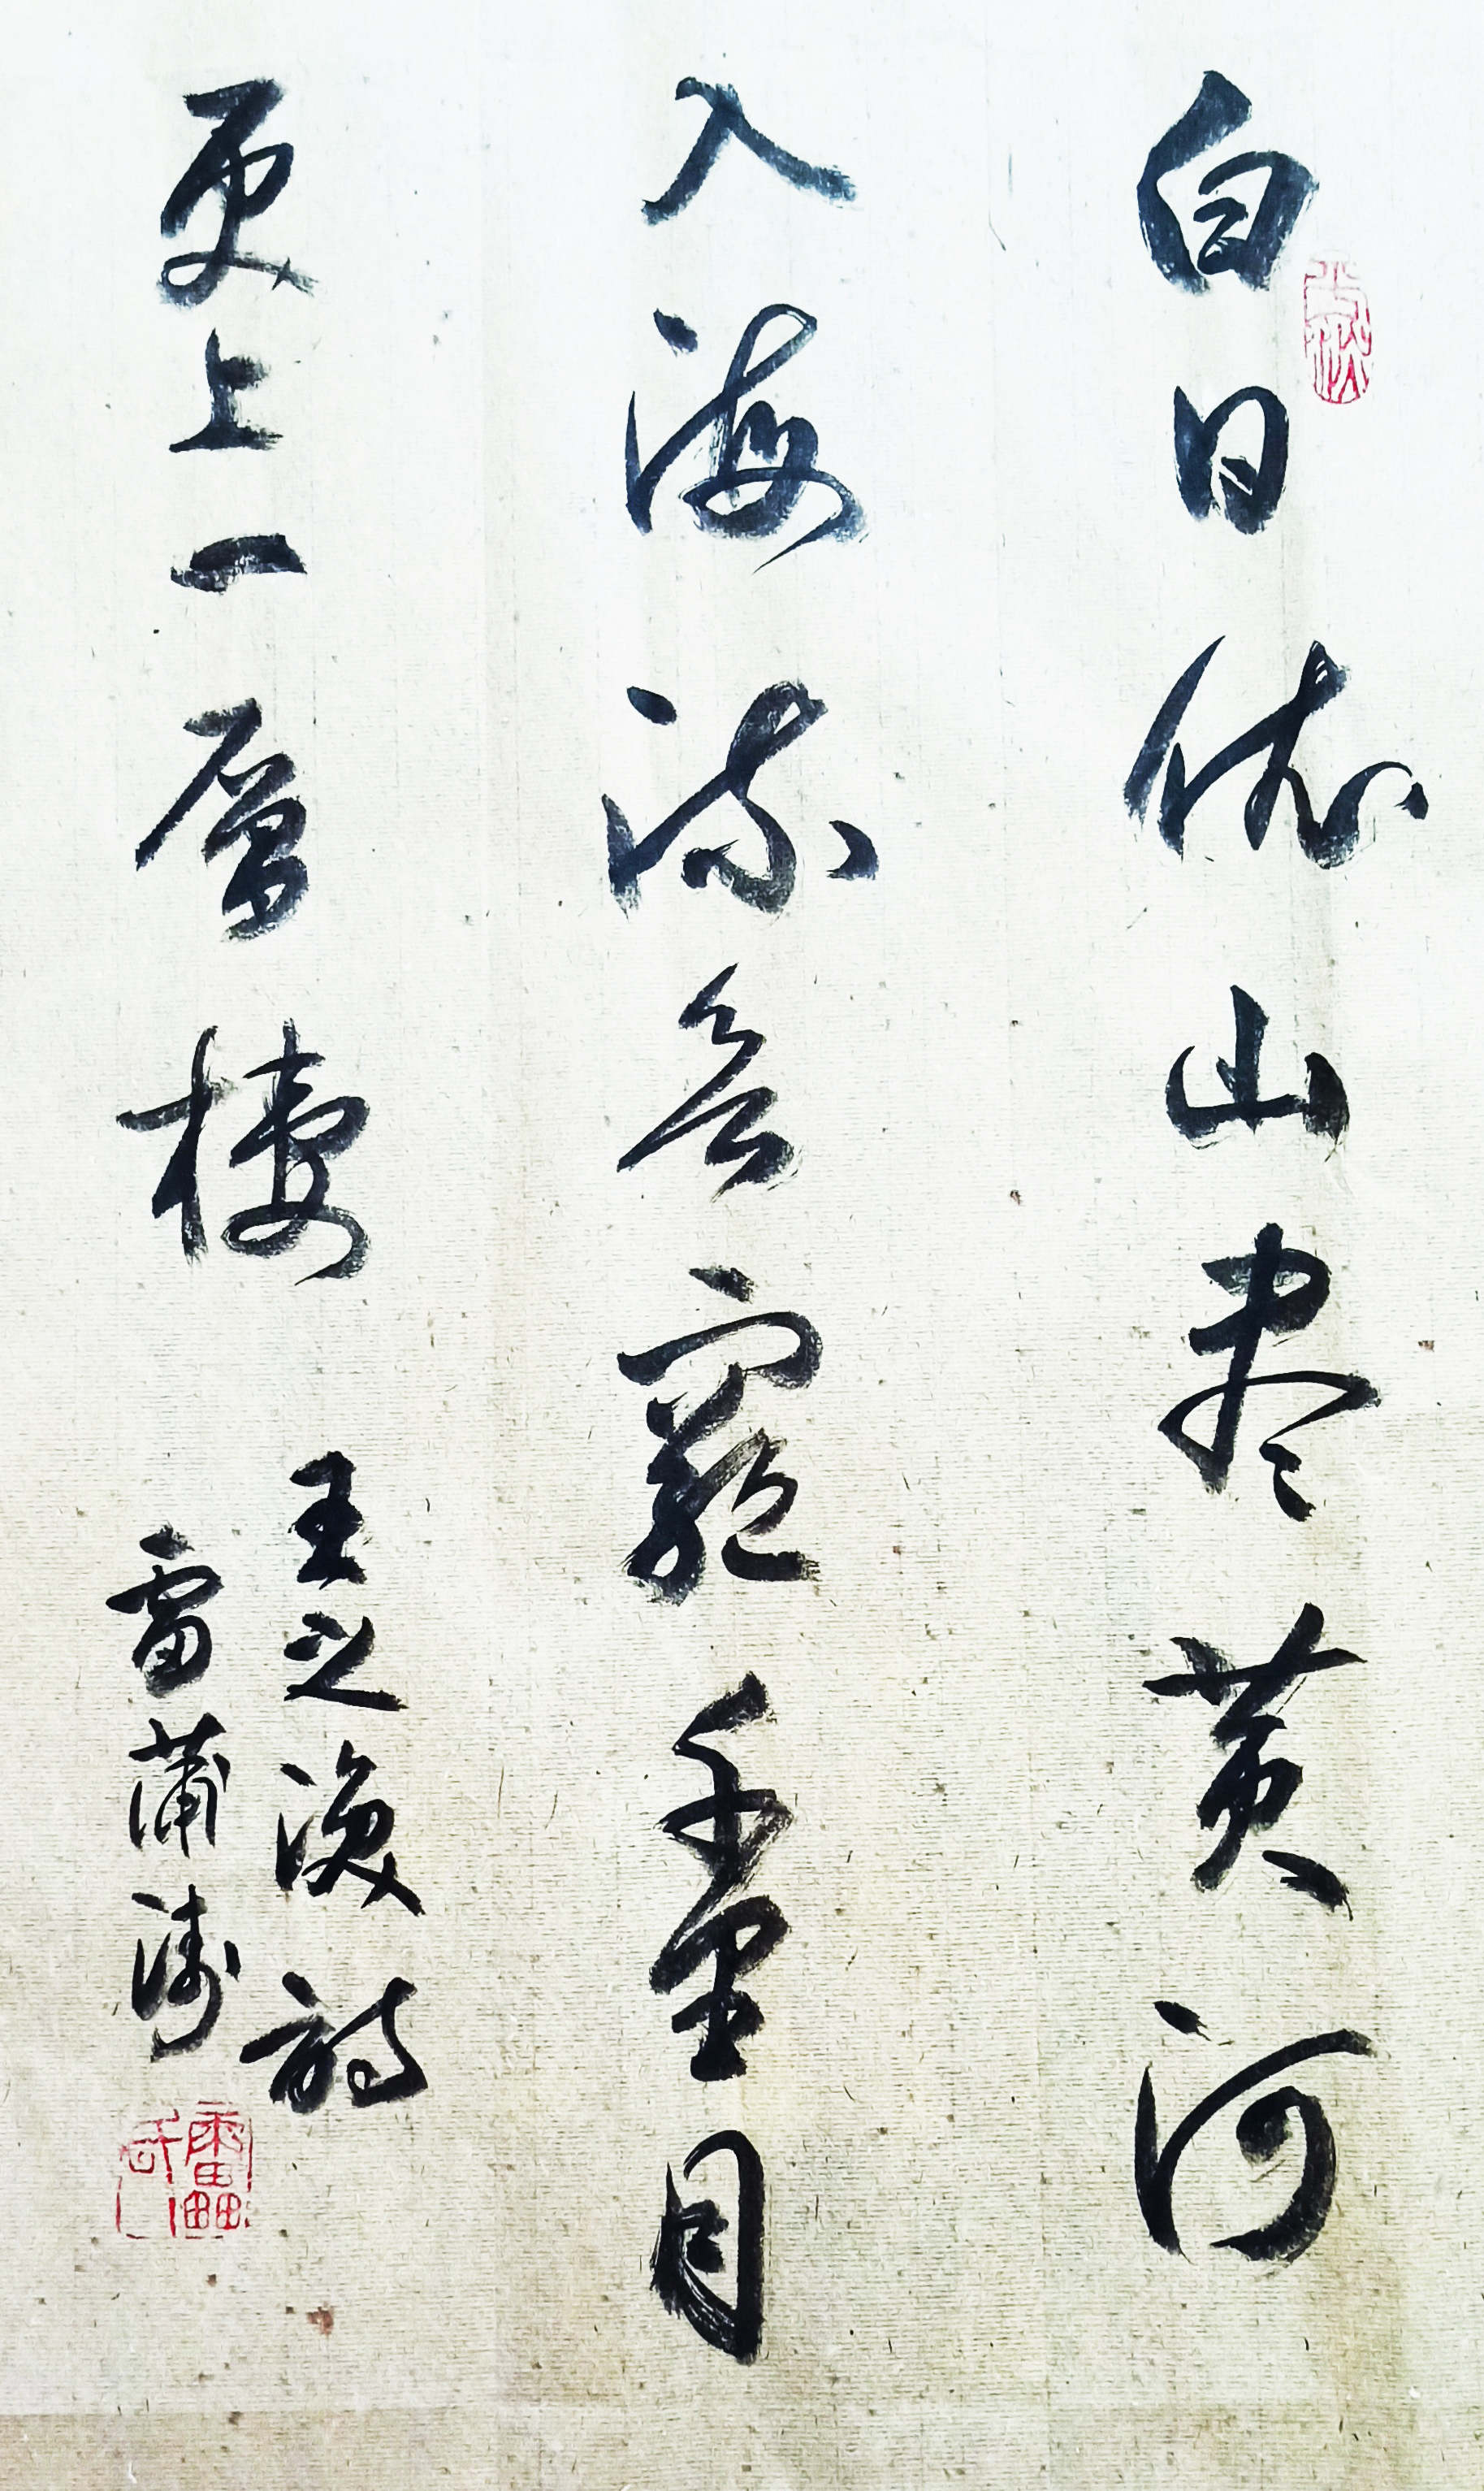 白日依山尽黄河
入海流欲窮千里目
更上一層樓
王之渙詩
雷蒲涛